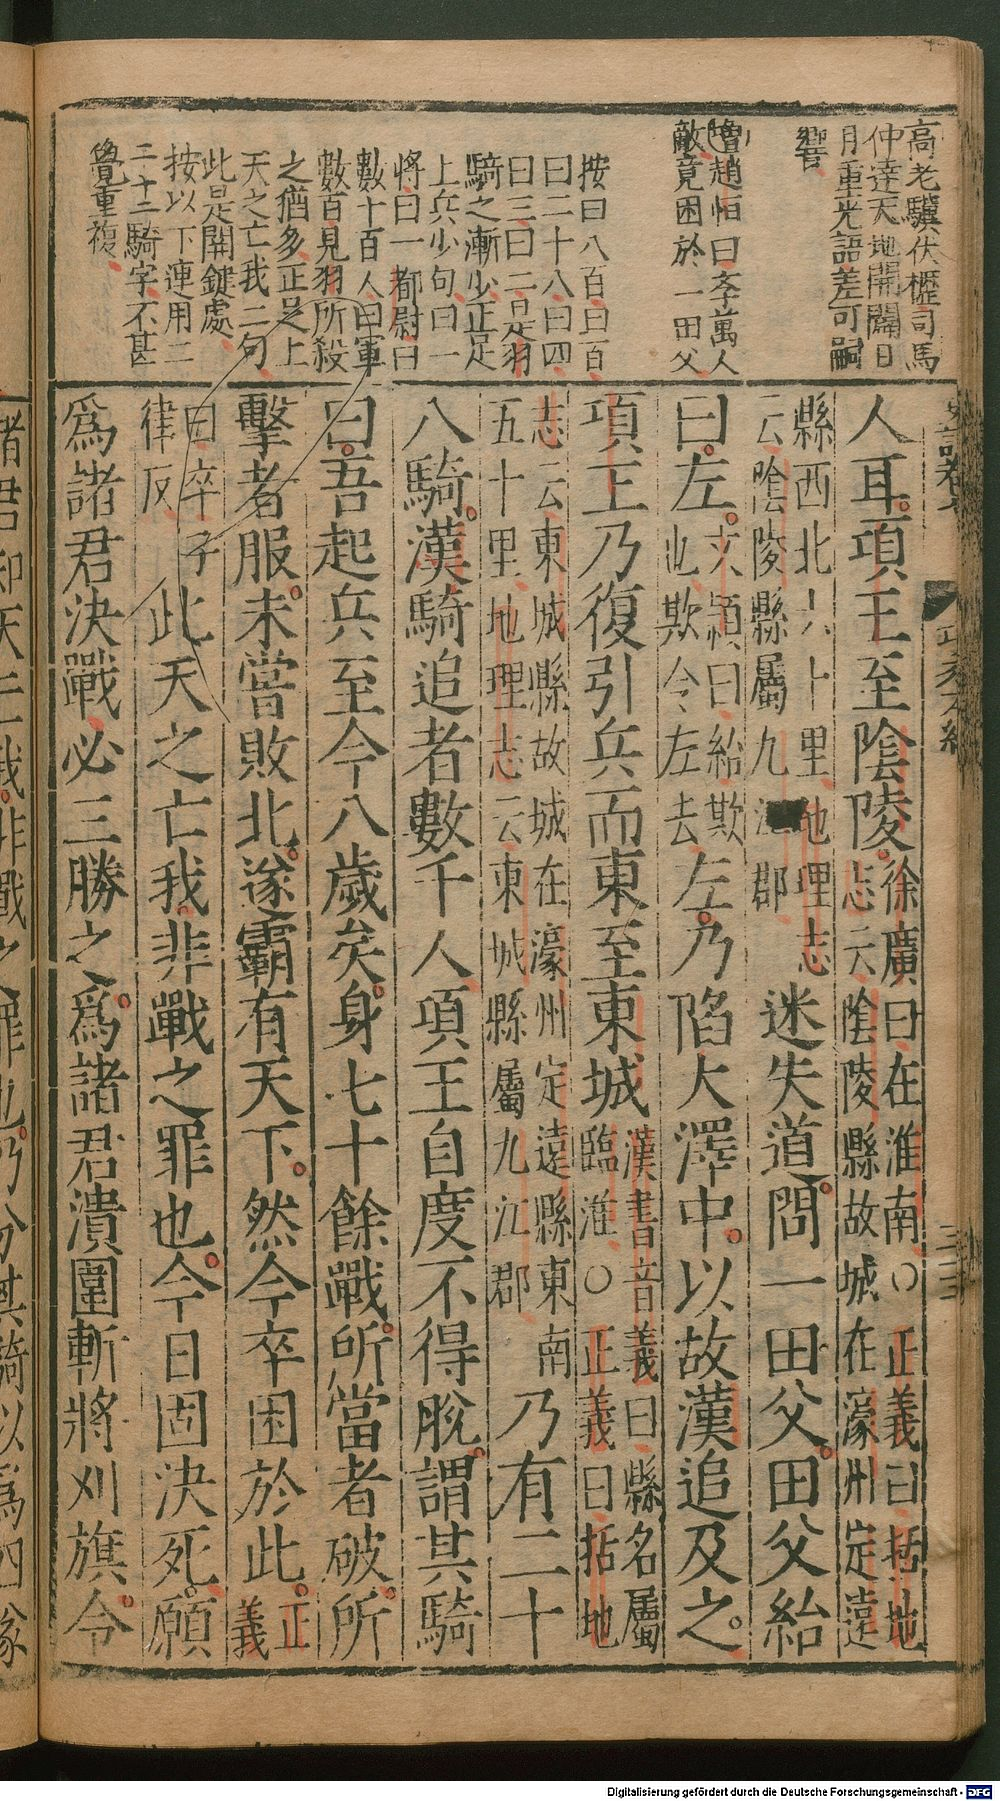 高老驥伏櫪司馬
仲達天地開闢日
月重光語差可嗣
響
增趙恒曰李萬人
敵竟困於一田父
按曰八百曰百
曰二十八曰四
曰三曰二是羽
騎之漸少正是
上兵少句曰一
將曰一都尉曰
數十百人曰軍
數百見羽所殺
之猶多正是上
天之亡我二句
此是關鍵處
按以下連用二
二十二騎字不甚
覺重複
人耳項王至陰陵徐廣曰在淮南○正義曰括地
志云陰陵縣故城在濠州定遠
縣西北六十里地理志
云陰陵縣屬九江郡
迷失道問一田父田父紿
曰左文穎曰紿欺
也欺令左去
左乃陷大澤中以故漢追及之
項王乃復引兵而東至東城漢書音義曰縣名屬
臨淮○正義曰括地
志云東城縣故城在濠州定遠縣東南
五十里地理志云東城縣屬九江郡
乃有二十
八騎漢騎追者數千人項王自度不得脫謂其騎
曰吾起兵至今八歲矣身七十餘戰所當者破所
擊者服未嘗敗北遂霸有天下然今卒困於此正
義
曰卒子
律反
此天之亡我非戰之罪也今日固決死願
為諸君決戰必三勝之為諸君潰圍斬將刈旗令
諸君知天亡我非戰之罪也乃分其騎以為四隊
史記卷七
項羽本紀
Digitalisierung gefördert durch die Deutsche Forschungsgemeinschaft - DFG